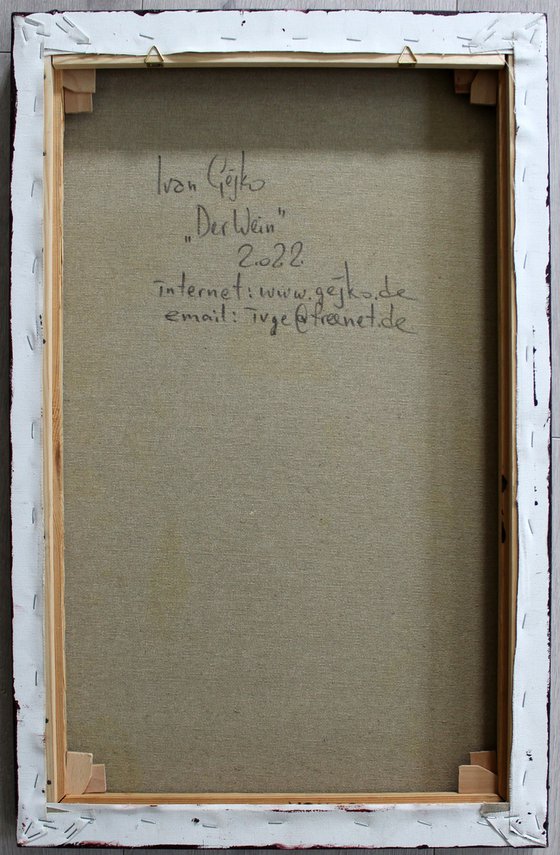 Ivan Gejko
„Der Wein"
2022
internet: www.gejko.de
email: ivge@freenet.de